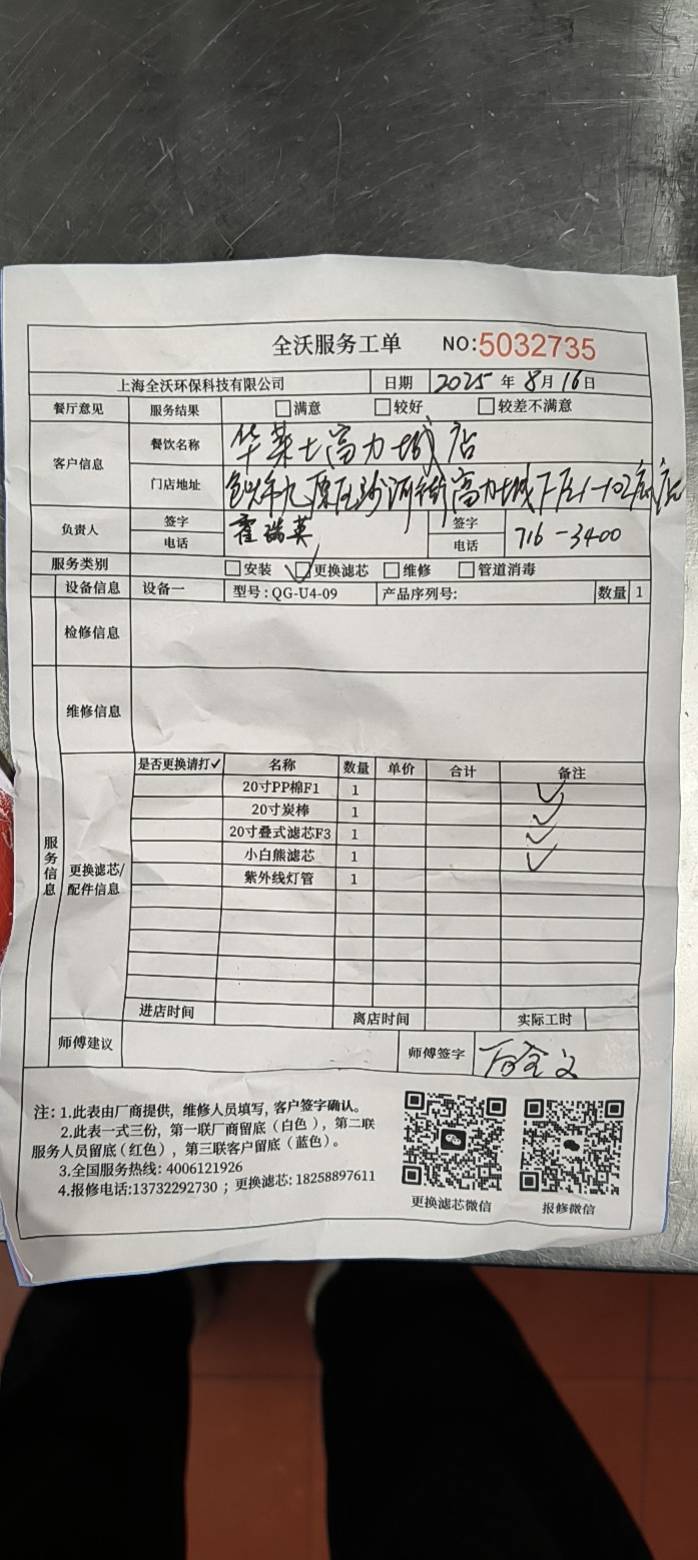 全沃服务工单 NO:5032735
上海全沃环保科技有限公司 日期 2025 年 8 月 16 日
餐厅意见 服务结果 □满意 □较好 □较差不满意
客户信息 餐饮名称 华莱士高力城店
门店地址 九原区沙河街高力城下店1-102底店
负责人 签字 霍瑞英 签字
电话 电话 716-3400
服务类别 □安装 ☑更换滤芯 □维修 □管道消毒
设备信息 设备一 型号:QG-U4-09 产品序列号: 数量 1
检修信息
维修信息
服务信息 更换滤芯/配件信息
是否更换请打✓ 名称 数量 单价 合计 备注
20寸PP棉F1 1 ✓
20寸炭棒 1 ✓
20寸叠式滤芯F3 1 ✓
小白熊滤芯 1 ✓
紫外线灯管 1
进店时间 离店时间 实际工时
师傅建议 师傅签字
注: 1.此表由厂商提供, 维修人员填写, 客户签字确认。
2.此表一式三份, 第一联厂商留底(白色), 第二联
服务人员留底(红色), 第三联客户留底(蓝色)。
3.全国服务热线: 4006121926
4.报修电话:13732292730 ; 更换滤芯: 18258897611
更换滤芯微信 报修微信